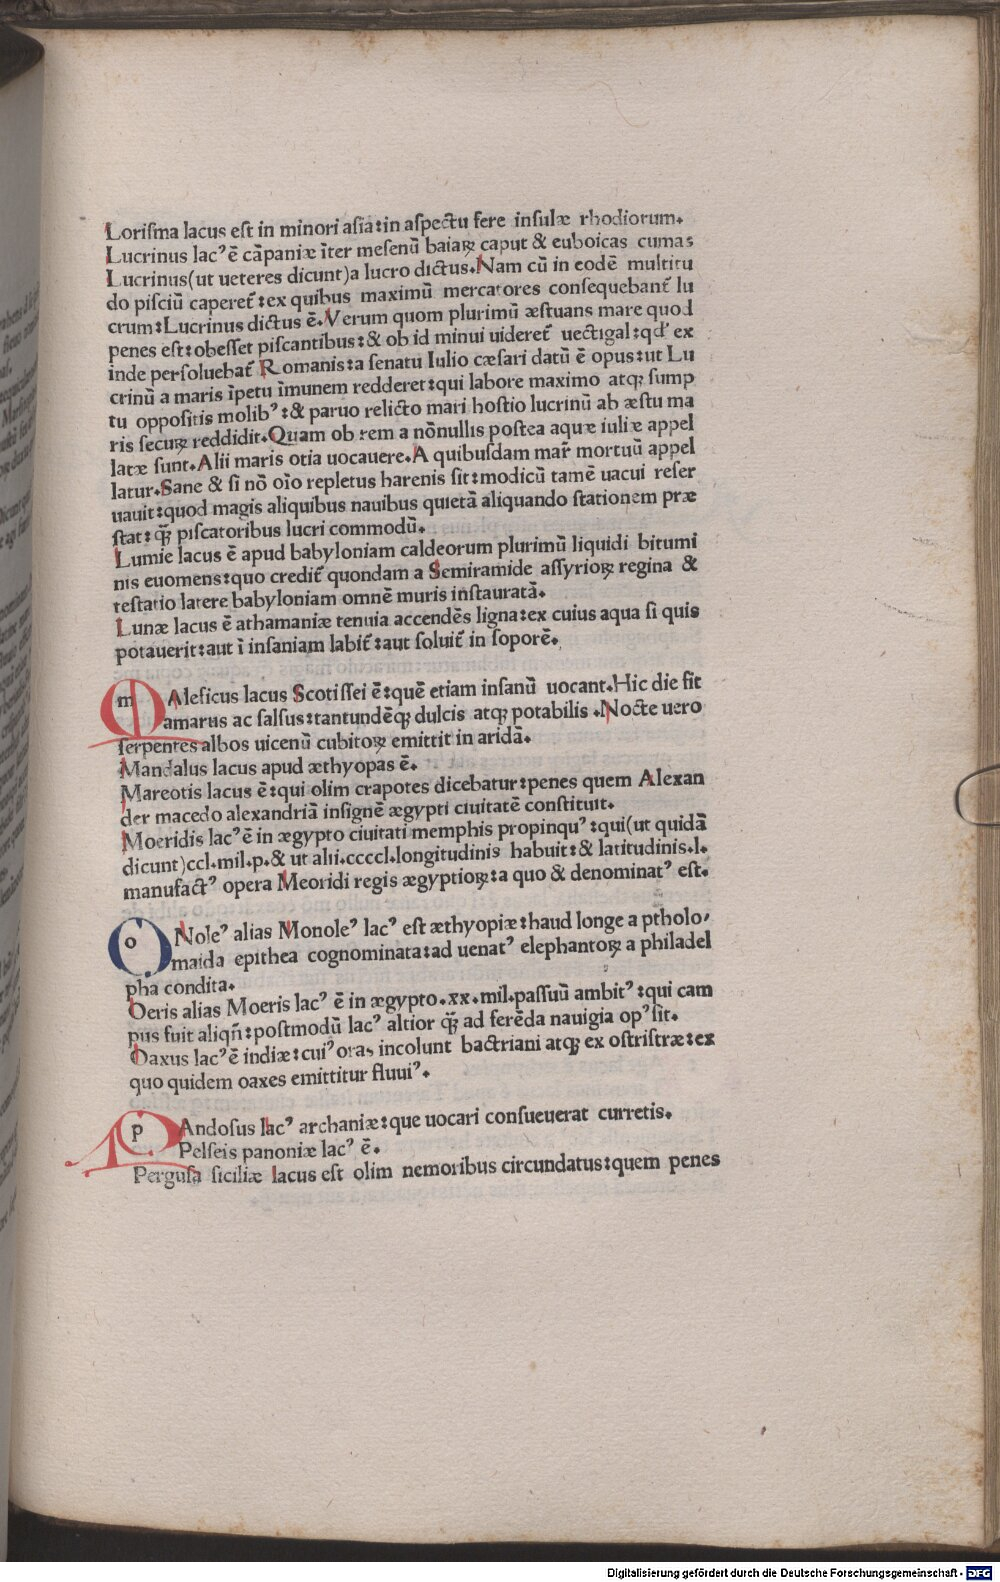 Lorisma lacus est in minori asia:in aspectu fere insulæ rhodiorum.
Lucrinus lacꝰ ē cāpaniæ īter mesenū baiaꝝ caput & euboicas cumas
Lucrinus(ut ueteres dicunt)a lucro dictus.Nam cū in eodē multitu
do pisciū caperet̄:ex quibus maximū mercatores consequebant̄ lu
crum:Lucrinus dictus ē.Verum quom plurimū æstuans mare quod
penes est:obesset piscantibus:& ob id minui uideret̄ uectigal:qd' ex
inde persoluebat̄ Romanis:a senatu Iulio cæsari datū ē opus:ut Lu
crinū a maris īpetu īmunem redderet:qui labore maximo atqꝫ sump
tu oppositis molibꝰ:& paruo relicto mari hostio lucrinū ab æstu ma
ris secuꝝ reddidit.Quam ob rem a nōnullis postea aquæ iuliæ appel
latæ sunt.Alii maris otia uocauere.A quibusdam mar̄ mortuū appel
latur.Sane & si nō oīo repletus harenis sit:modicū tamē uacui reser
uauit:quod magis aliquibus nauibus quietā aliquando stationem præ
stat:qꝫ̄ piscatoribus lucri commodū.
Lumie lacus ē apud babyloniam caldeorum plurimū liquidi bitumi
nis euomens:quo credit̄ quondam a Semiramide assyrioꝝ regina &
testatio latere babyloniam omnē muris instauratā.
Lunæ lacus ē athamaniæ tenuia accendēs ligna:ex cuius aqua si quis
potauerit:aut ī insaniam labit̄:aut soluit̄ in soporē.
m Aleficus lacus Scotissei ē:quē etiam insanū uocant.Hic die fit
amarus ac salsus:tantundēqꝫ dulcis atqꝫ potabilis .Nocte uero
serpentes albos uicenū cubitoꝝ emittit in aridā.
Mandalus lacus apud æthyopas ē.
Mareotis lacus ē:qui olim crapotes dicebatur:penes quem Alexan
der macedo alexandriā insignē ægypti ciuitatē constituit.
Moeridis lacꝰ ē in ægypto ciuitati memphis propinquꝰ:qui(ut quidā
dicunt)ccl.mil.p.& ut alii.ccccl.longitudinis habuit:& latitudinis.l.
manufactꝰ opera Meoridi regis ægyptioꝝ:a quo & denominatꝰ est.
o Noleꝰ alias Monoleꝰ lacꝰ est æthyopiæ:haud longe a ptholo,
maida epithea cognominata:ad uenatꝰ elephantoꝝ a philadel
pha condita.
Oeris alias Moeris lacꝰ ē in ægypto.xx.mil.passuū ambitꝰ:qui cam
pus fuit aliqn̄:postmodū lacꝰ altior qꝫ̄ ad ferēda nauigia opꝰ sit.
Oaxus lacꝰ ē indiæ:cuiꝰ oras incolunt bactriani atqꝫ ex ostristræ:ex
quo quidem oaxes emittitur fluuiꝰ.
p Andosus lacꝰ archaniæ:que uocari consueuerat curretis.
Pelseis panoniæ lacꝰ ē.
Pergusa siciliæ lacus est olim nemoribus circundatus:quem penes
Digitalisierung gefördert durch die Deutsche Forschungsgemeinschaft - DFG